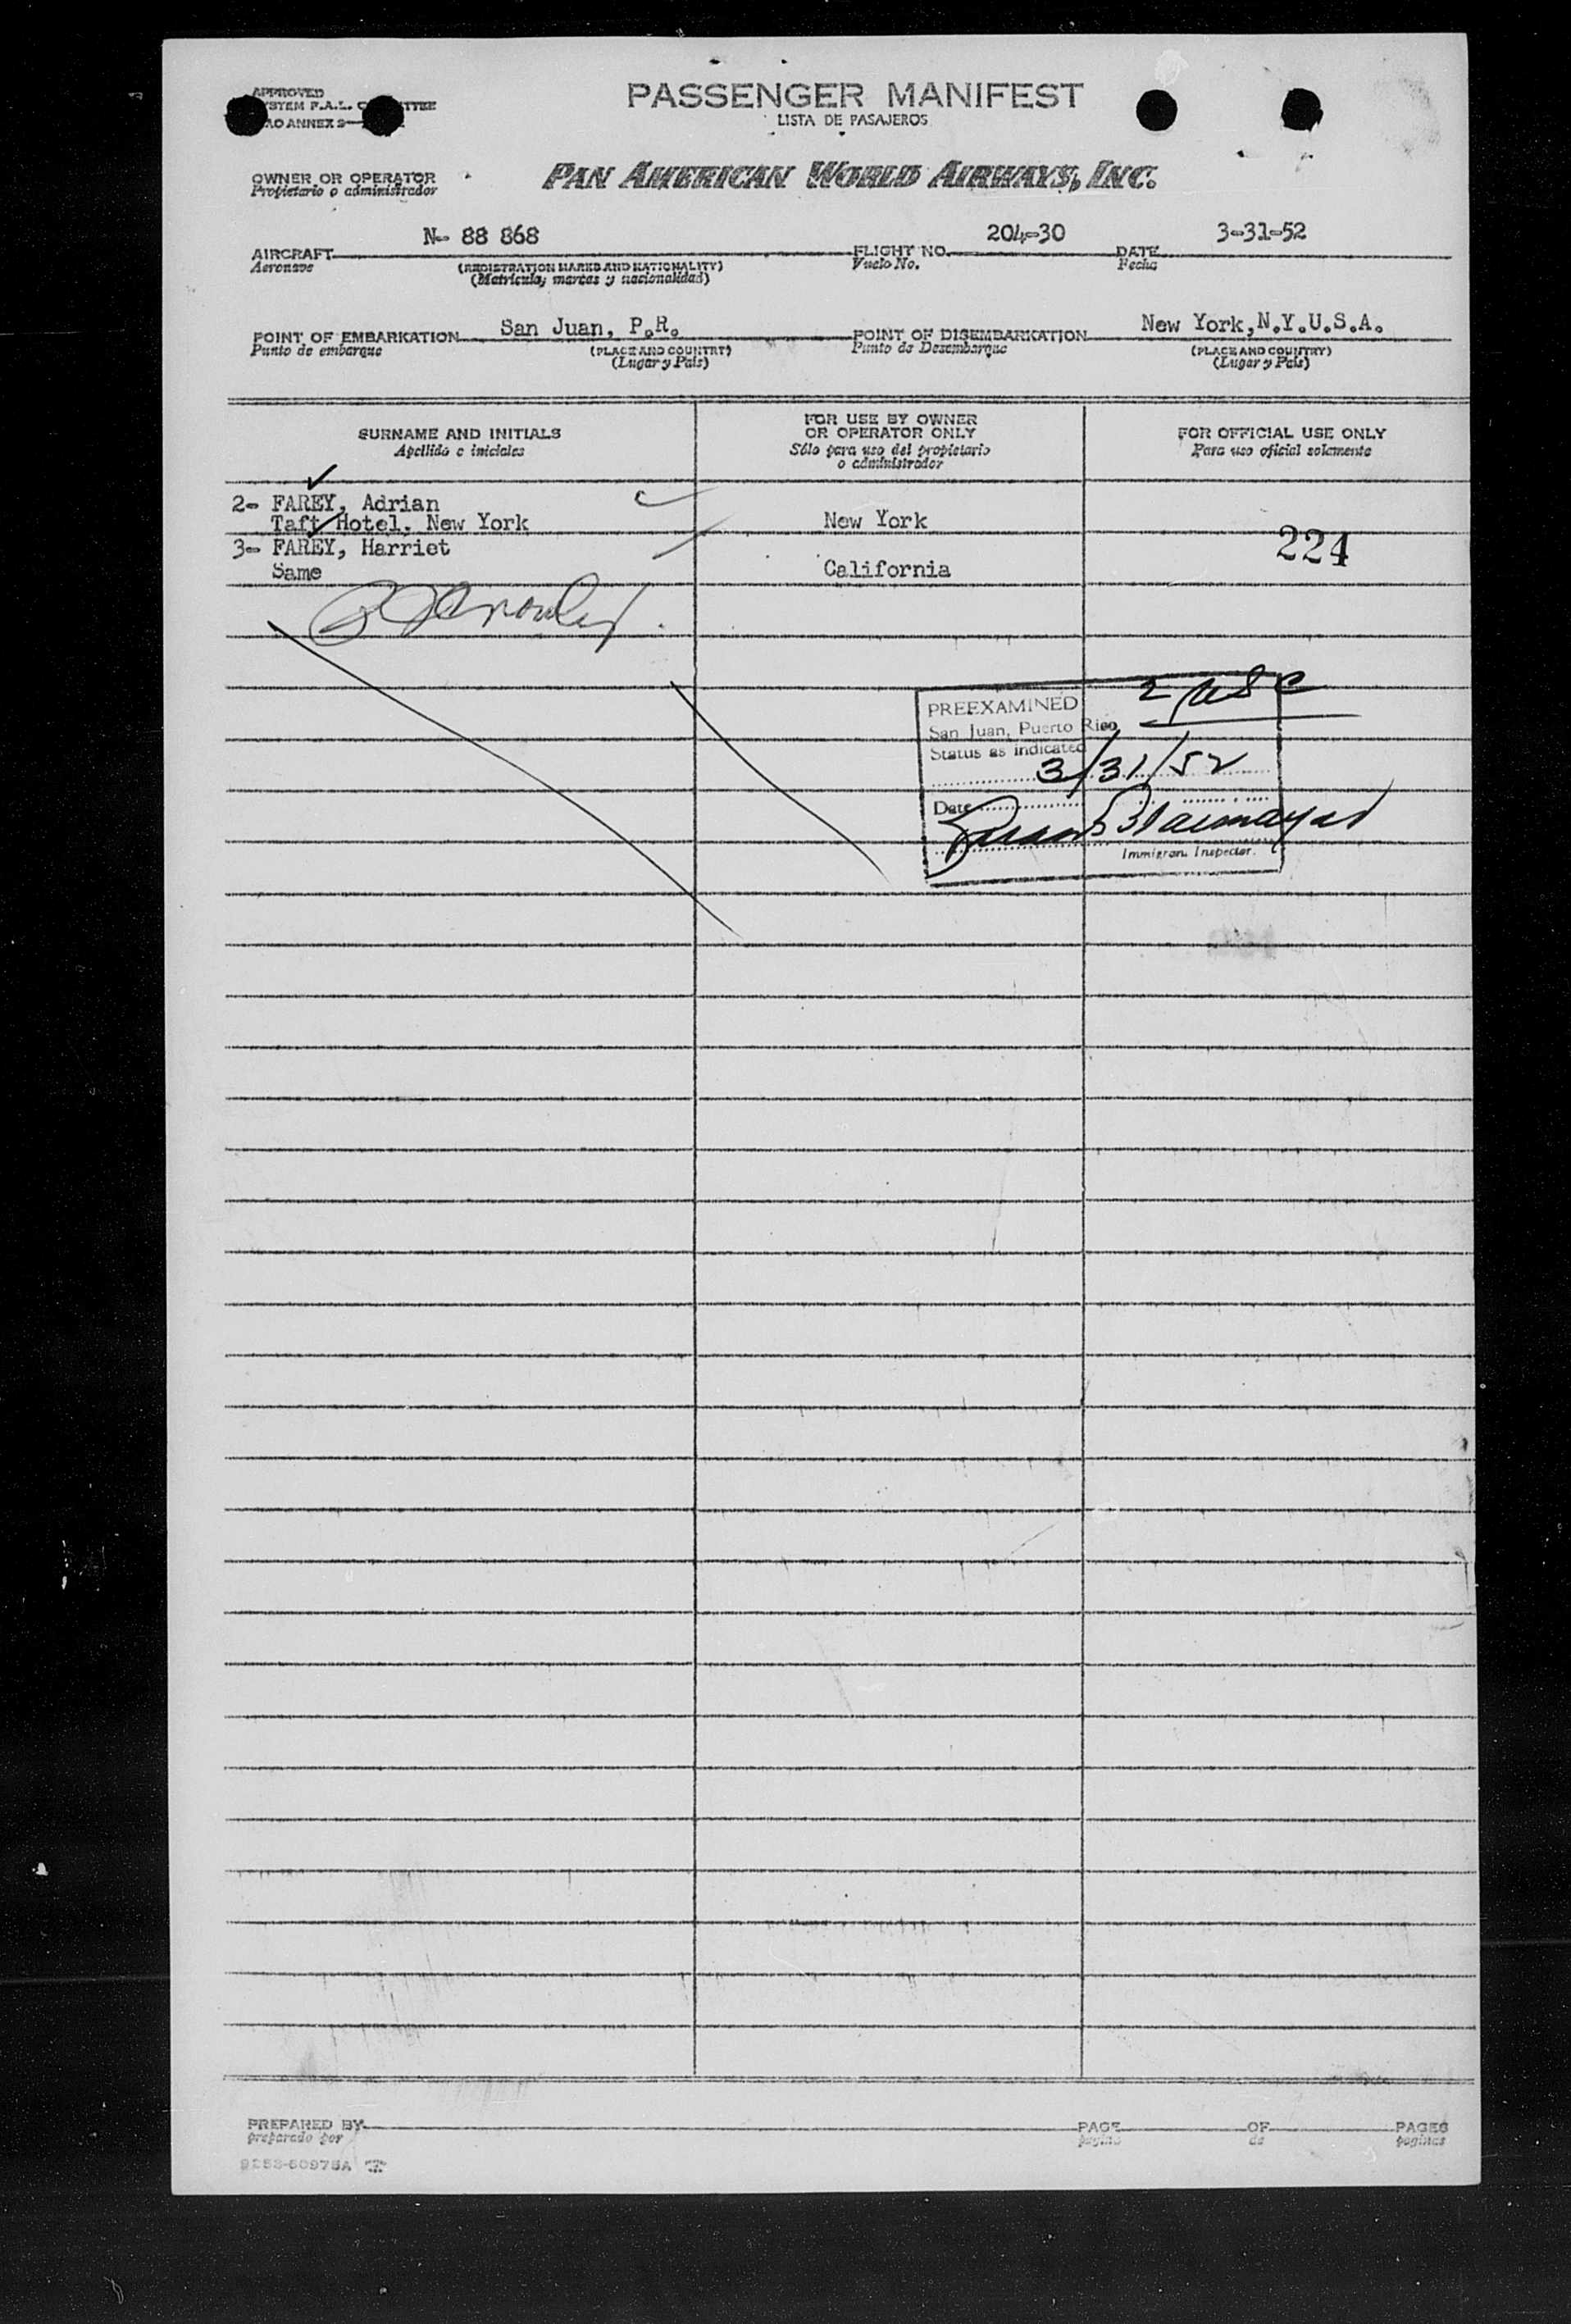 APPROVED
PASSENGER MANIFEST
LISTA DE PASAJEROS
OWNER OR OPERATOR
Propietario o administrador
PAN AMERICAN WORLD AIRWAYS, INC.
AIRCRAFT N- 88 868 FLIGHT NO. 204-30 DATE 3-31-52
Aeronave (REGISTRATION MARKS AND NATIONALITY) Vuelo No. Fecha
(Matricula, marcas y nacionalidad)
POINT OF EMBARKATION San Juan, P.R. POINT OF DISEMBARKATION New York,N.Y.U.S.A.
Punto de embarque (PLACE AND COUNTRY) Punto de Desembarque (PLACE AND COUNTRY)
(Lugar y País) (Lugar y País)
SURNAME AND INITIALS
Apellido e iniciales
FOR USE BY OWNER
OR OPERATOR ONLY
Sólo para uso del propietario
o administrador
FOR OFFICIAL USE ONLY
Para uso oficial solamente
2- FAREY, Adrian
Taft Hotel, New York New York
3- FAREY, Harriet
Same California
224
2 USC
PREEXAMINED
San Juan, Puerto Rico
Status as indicated
3/31/52
Date
Immigran. Inspector.
PREPARED BY PAGE OF PAGES
preparado por pagina de paginas